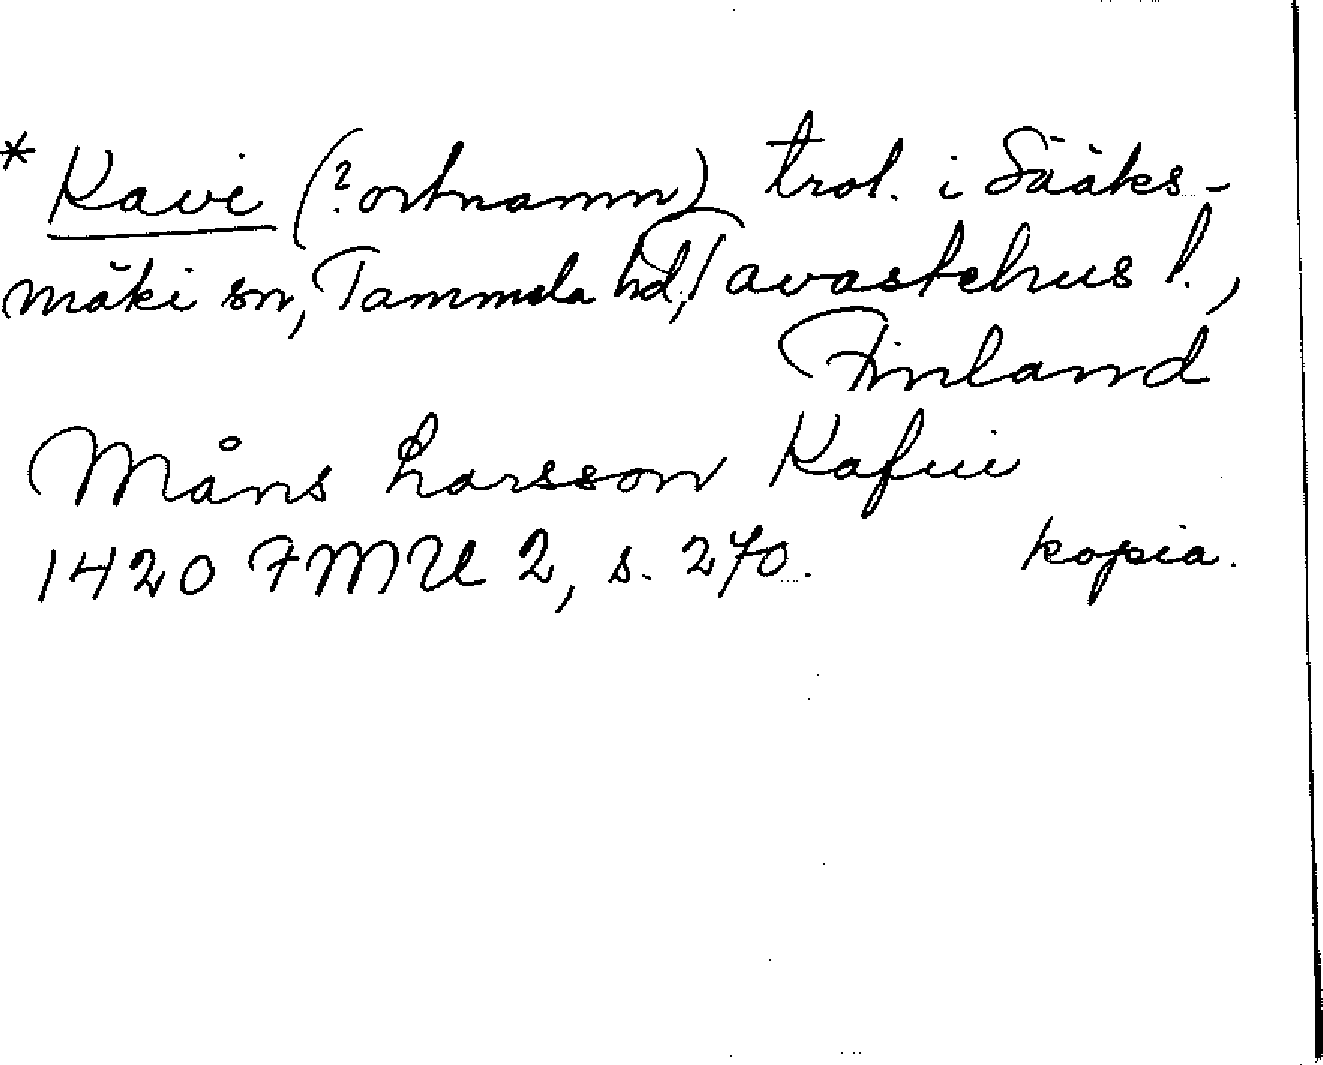 * Kavi (? ortnamn) trol. i Sääks-
mäki sn, Tammela hd, Tavastehus l.,
Finland
Måns Larsson Kafui
1420 FMU 2, s. 270. kopia.